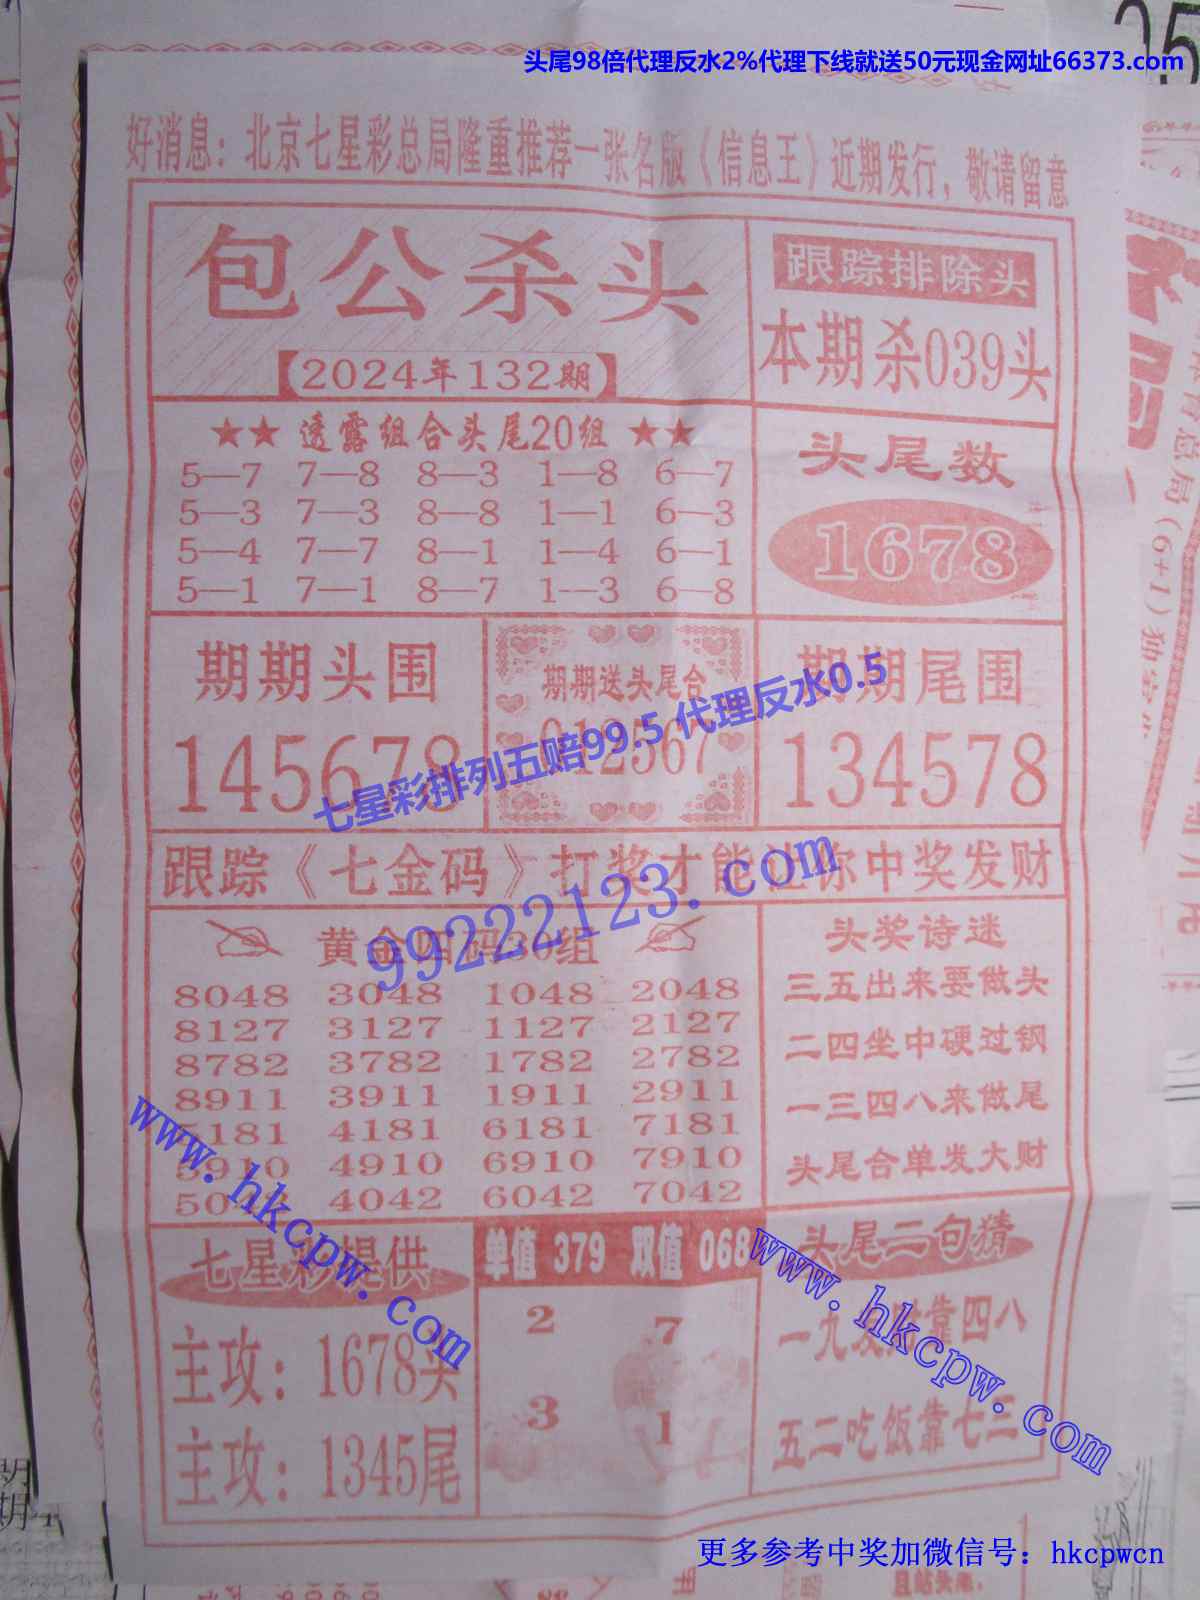 头尾98倍代理反水2%代理下线就送50元现金网址66373.com
好消息：北京七星彩总局隆重推荐一张名版《信息王》近期发行，敬请留意
包公杀头
【2024年132期】
跟踪排除头
本期杀039头
★★ 透露组合头尾20组 ★★
5—7 7—8 8—3 1—8 6—7
5—3 7—3 8—8 1—1 6—3
5—4 7—7 8—1 1—4 6—1
5—1 7—1 8—7 1—3 6—8
头尾数
1678
期期头围
145678
期期送头尾合
012567
期期尾围
134578
七星彩排列五赔99.5 代理反水0.5
跟踪《七金码》打奖才能让你中奖发财
99222123.com
黄金四码30组
8048 3048 1048 2048
8127 3127 1127 2127
8782 3782 1782 2782
8911 3911 1911 2911
5181 4181 6181 7181
5910 4910 6910 7910
5042 4042 6042 7042
头奖诗迷
三五出来要做头
二四坐中硬过钢
一三四八来做尾
头尾合单发大财
www.hkcpw.com
七星彩提供
主攻：1678头
主攻：1345尾
单值 379 双值 068
2 7
3 1
头尾二句猜
一九发财靠四八
五二吃饭靠七三
www.hkcpw.com
更多参考中奖加微信号：hkcpwcn